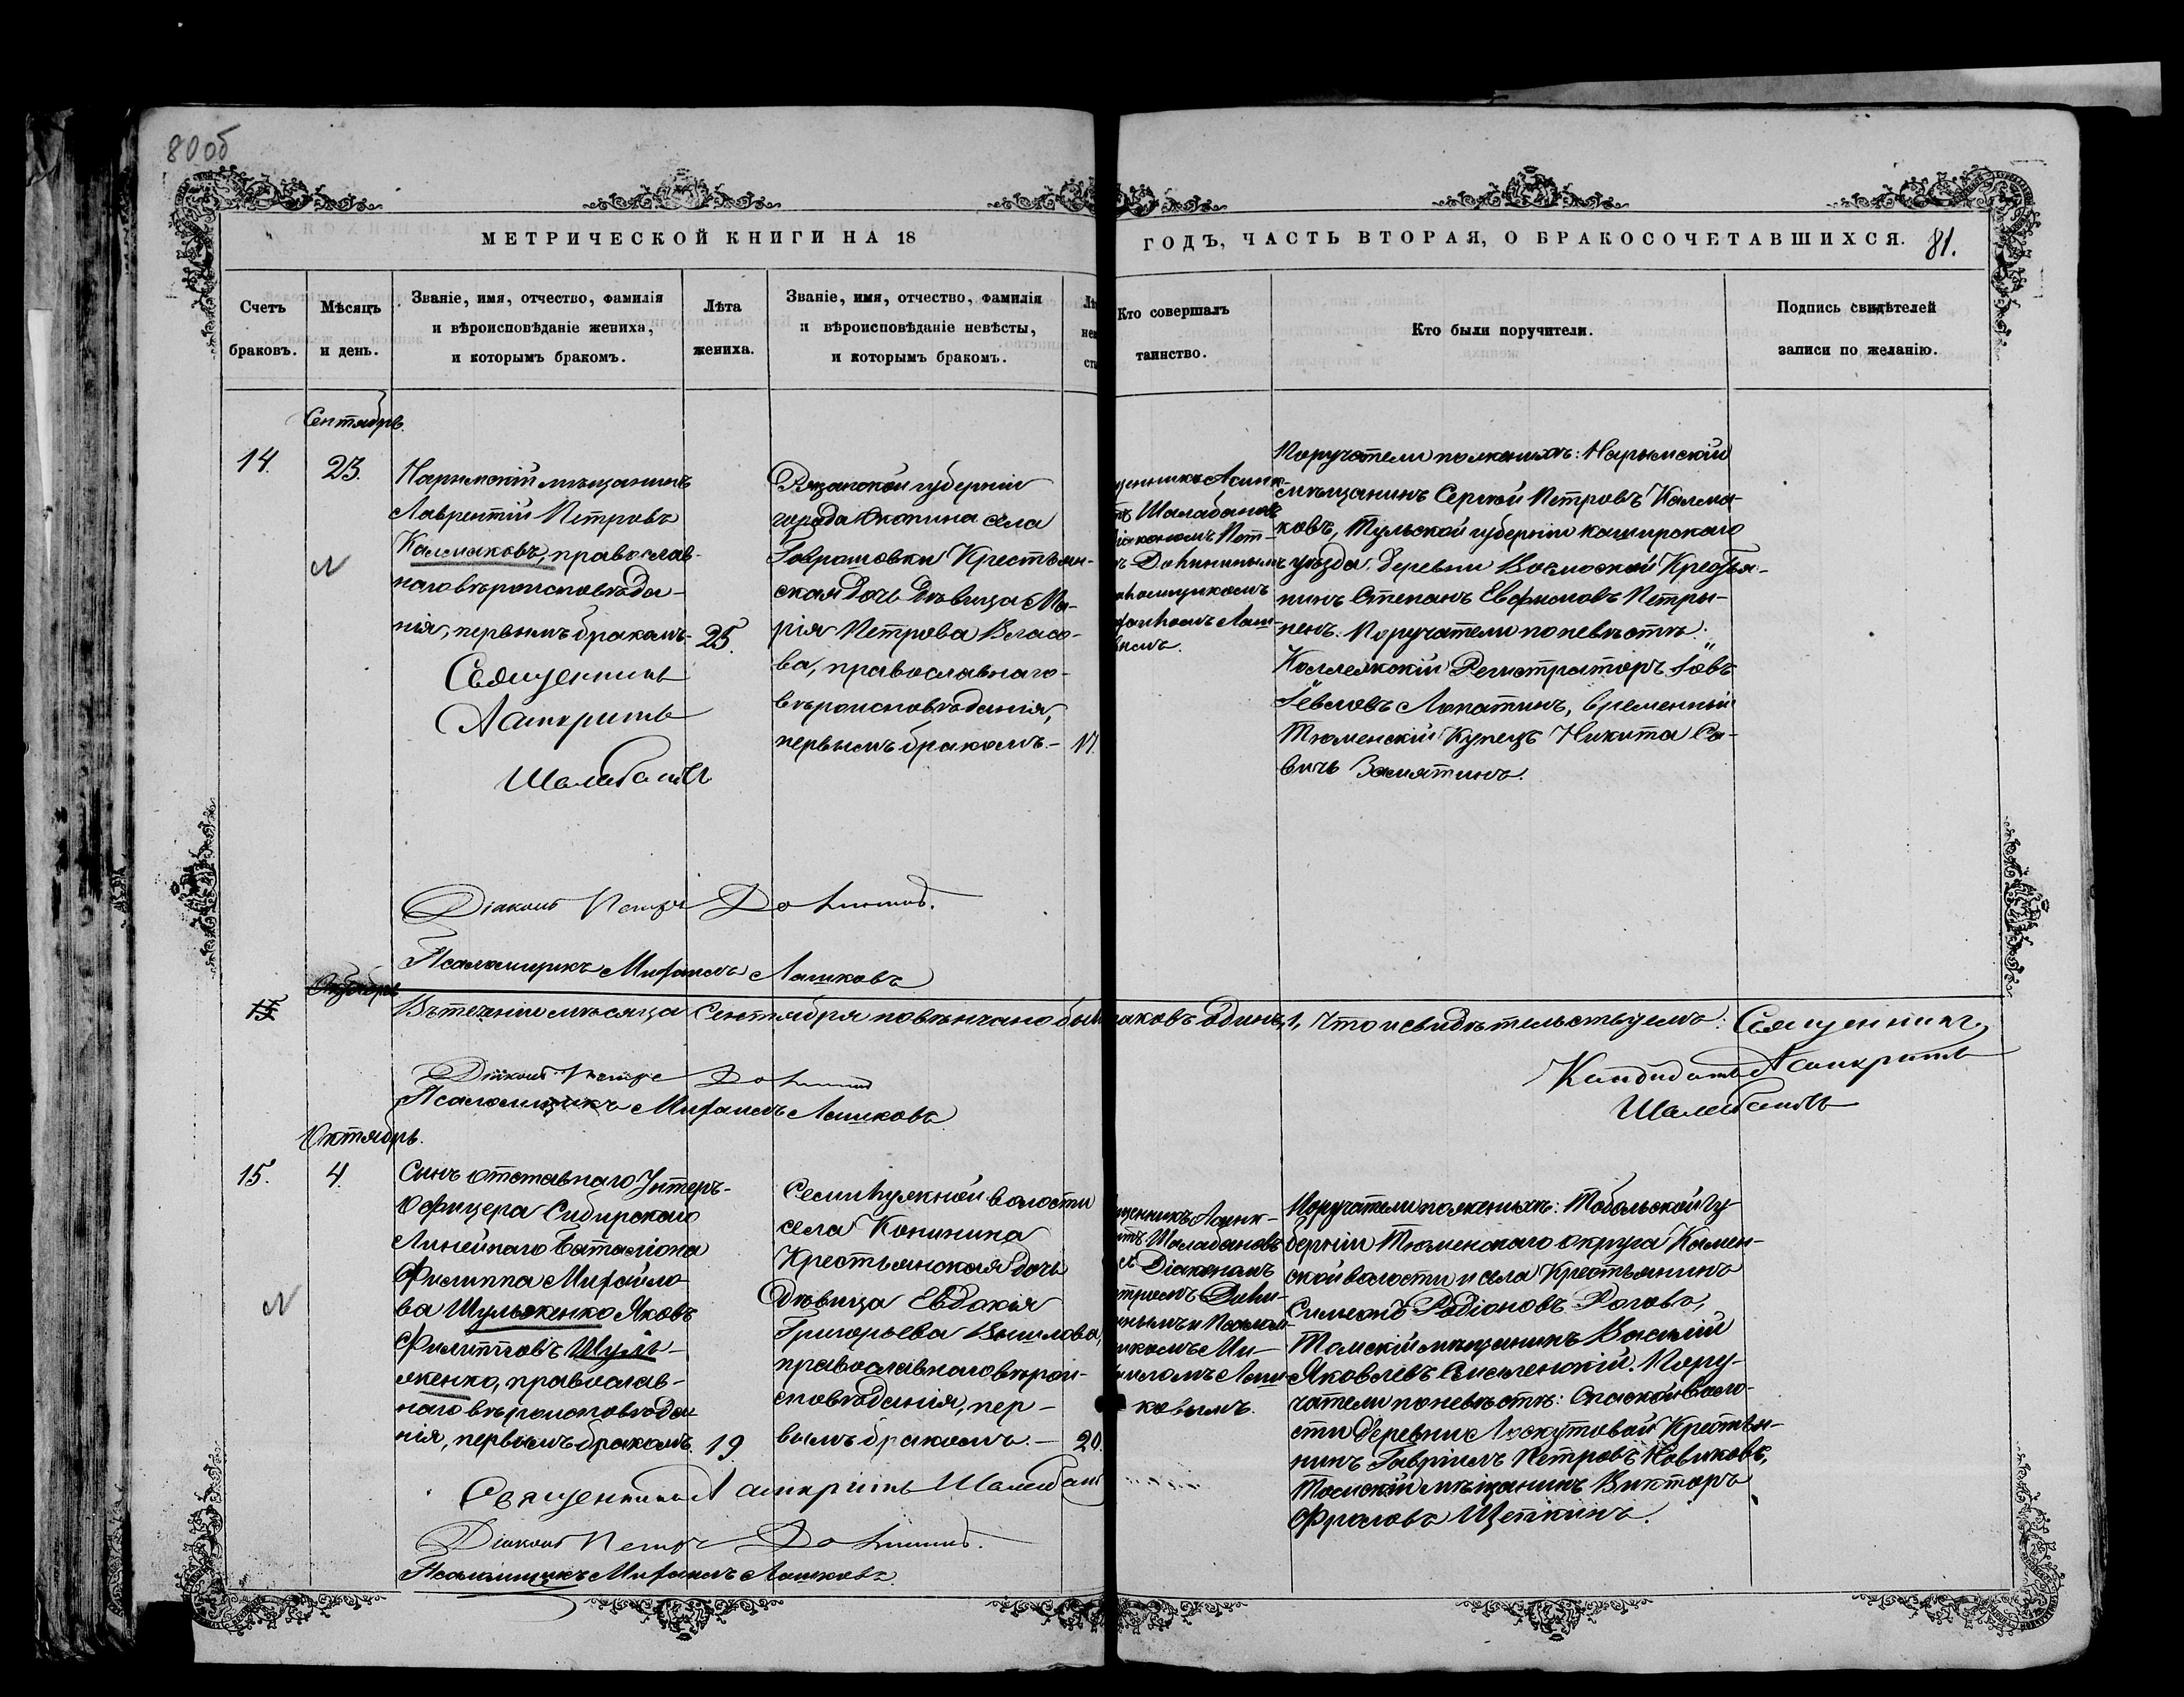 80об
МЕТРИЧЕСКОЙ КНИГИ НА 18
ГОДЪ, ЧАСТЬ ВТОРАЯ, О БРАКОСОЧЕТАВШИХСЯ.
81.
Счетъ
браковъ.
Мѣсяцъ
и день.
Званіе, имя, отчество, фамилія
и вѣроисповѣданіе жениха,
и которымъ бракомъ.
Лѣта
жениха.
Званіе, имя, отчество, фамилія
и вѣроисповѣданіе невѣсты,
и которымъ бракомъ.
Лѣ
не
ст
Кто совершалъ
таинство.
Кто были поручители.
Подпись свидѣтелей
записи по желанію.
Сентябрь.
14.
23.
Нарымскій мѣщанинъ
Лаврентій Петровъ
Калмаковъ, православ-
наго вѣроисповѣда-
нія, первымъ бракомъ.
25.
Священникъ
Асинкритъ
Шалабановъ
Рязанской губерніи
города Скопина села
Говрашовки Крестьян-
ская дочь дѣвица Ма-
рія Петрова Власо-
ва, православнаго
вѣроисповѣданія,
первымъ бракомъ.-
17.
щенникъ Асинк-
тъ Шалабановъ
іакономъ Пет-
оломщикомъ
хаиломъ Лаш-
вымъ.
Поручатели по женихѣ: Нарымскій
мѣщанинъ Сергѣй Петровъ Калма-
ковъ, Тульской губерніи каширскаго
уѣзда, деревни Крестья-
нинъ Степанъ Евфимовъ Петры-
ненъ. Поручатели по невѣстѣ:
Коллежскій Регистраторъ Іовъ
Іевлевъ Лопатинъ, временный
Тюменскій Купецъ Никита Са-
вичь Замятинъ.
Діаконъ Петръ
Псаломщикъ Михаилъ Лашковъ
Октябрь
15
Въ теченіи мѣсяца Сентября повѣнчано бы
раковъ одинъ, 1, что и свидѣтельствуемъ: Священникъ,
Кандидатъ Асинкритъ
Шалабановъ
Діаконъ Петръ
Псаломщикъ Михаилъ Лашковъ
Октябрь.
15.
4.
Сынъ отставнаго Унтеръ-
Офицера Сибирскаго
Линейнаго Баталіона
Филиппа Михайло-
ва Шульженко Яковъ
Филипповъ Шуль-
женко, православ-
наго вѣроисповѣда
нія, первымъ бракомъ.
19.
Семилужной волости
села Конинина
Крестьянская дочь
дѣвица Евдокія
Григорьева Вышлова,
православнаго вѣрои-
сповѣданія, пер-
вымъ бракомъ.-
20
щенникъ Асинк-
итъ Шалабановъ
съ Діакономъ
тромъ
нымъ и Псалом-
икомъ Ми-
аиломъ Лаш-
ковымъ.
Поручатели по женихѣ: Тобольской гу-
берніи Тюменскаго округа Камен-
ской волости и села Крестьянинъ
Симеонъ Родіоновъ Роговъ,
Томскій мѣщанинъ Василій
Яковлевъ Смоленскій. Пору-
чатели по невѣстѣ: Спаской воло-
сти деревни Лоскутовой Крестьян-
нинъ Гавріилъ Петровъ Новиковъ,
Томскій мѣщанинъ Викторъ
Фроловъ Щепкинъ.
Священникъ Асинкритъ Шалабан
Діаконъ Петръ
Псаломщикъ Михаилъ Лашковъ.